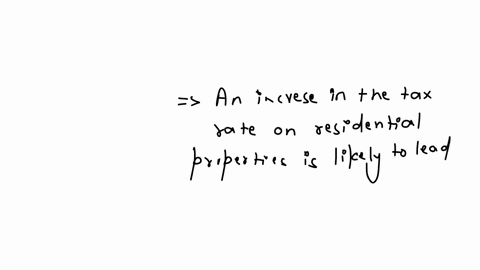 => An increse in the tax
rate on residential
properties is likely to lead